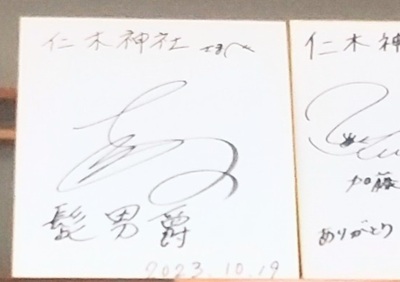 仁木神社
髭男爵
2023.10.19
仁木神
加藤
ありがとう